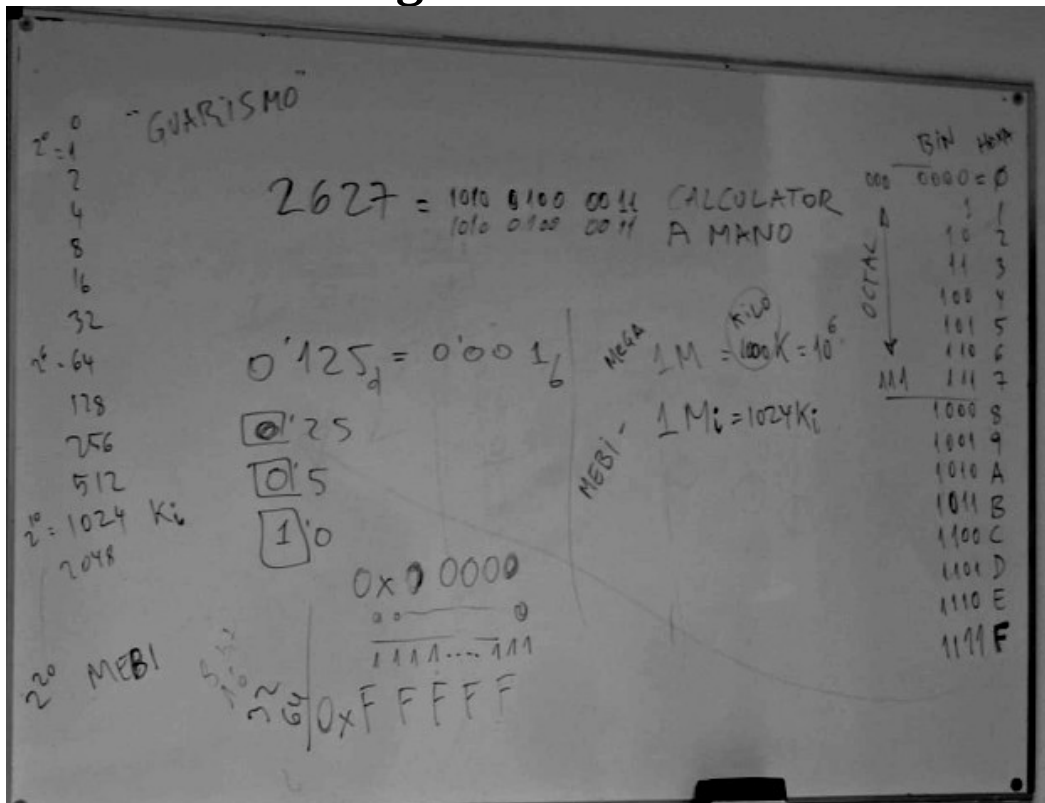 "GUARISMO"
0
2⁰=1
2
4
8
16
32
2⁶=64
128
256
512
2¹⁰=1024 Ki
2048
2²⁰ MEBI
2627 = 1010 0100 0011 CALCULATOR
1010 0100 0011 A MANO
0'125d = 0'001b
0'25
0'5
1'0
MEGA 1M = 1000K = 10⁶
KILO
MEBI - 1Mi = 1024Ki
0x00000
0 0 0
1111....111
0xFFFFF
BIN HEXA
000 0000 = 0
OCTAL
1 1
10 2
11 3
100 4
101 5
110 6
111 111 7
1000 8
1001 9
1010 A
1011 B
1100 C
1101 D
1110 E
1111 F